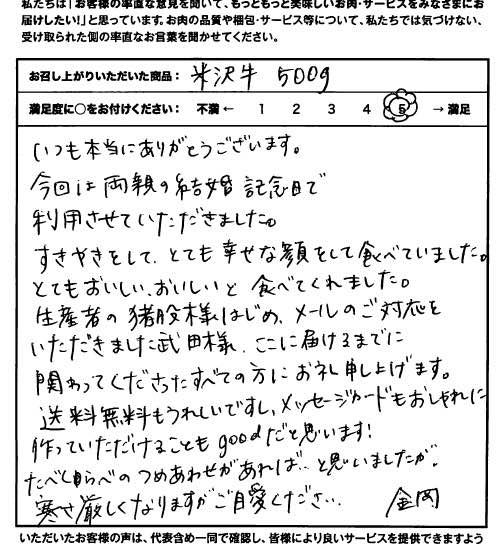 私たちは「お客様の率直な意見を聞いて、もっともっと美味しいお肉・サービスをみなさまにお
届けしたい!」と思っています。お肉の品質や梱包・サービス等について、私たちでは気づけない、
受け取られた側の率直なお言葉を聞かせてください。
お召し上がりいただいた商品: 米沢牛 500g
満足度に○をお付けください: 不満 ← 1 2 3 4 5 → 満足
いつも本当にありがとうございます。
今回は両親の結婚記念日で
利用させていただきました。
すきやきをして、とても幸せな顔をして食べていました。
とてもおいしい、おいしいと食べてくれました。
生産者の猪股様はじめ、メールのご対応を
いただきました武田様、ここに届けるまでに
関わってくださったすべての方にお礼申し上げます。
送料無料もうれしいですし、メッセージカードもおしゃれに
作っていただけることもgoodだと思います!
たべくらべのつめあわせがあれば…と思いましたが。
寒さ厳しくなりますがご自愛ください… 金岡
いただいたお客様の声は、代表含め一同で確認し、皆様により良いサービスを提供できますよう